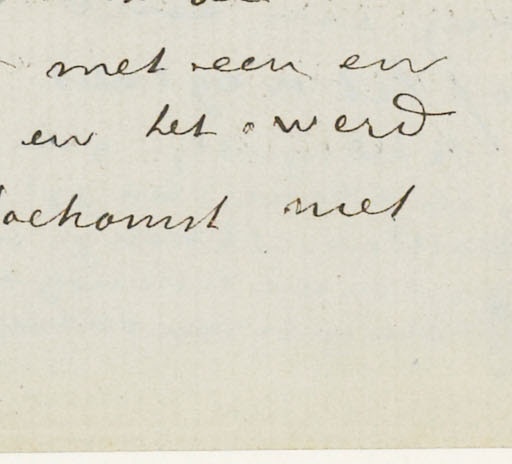 met een en
en het werd
toekomst met